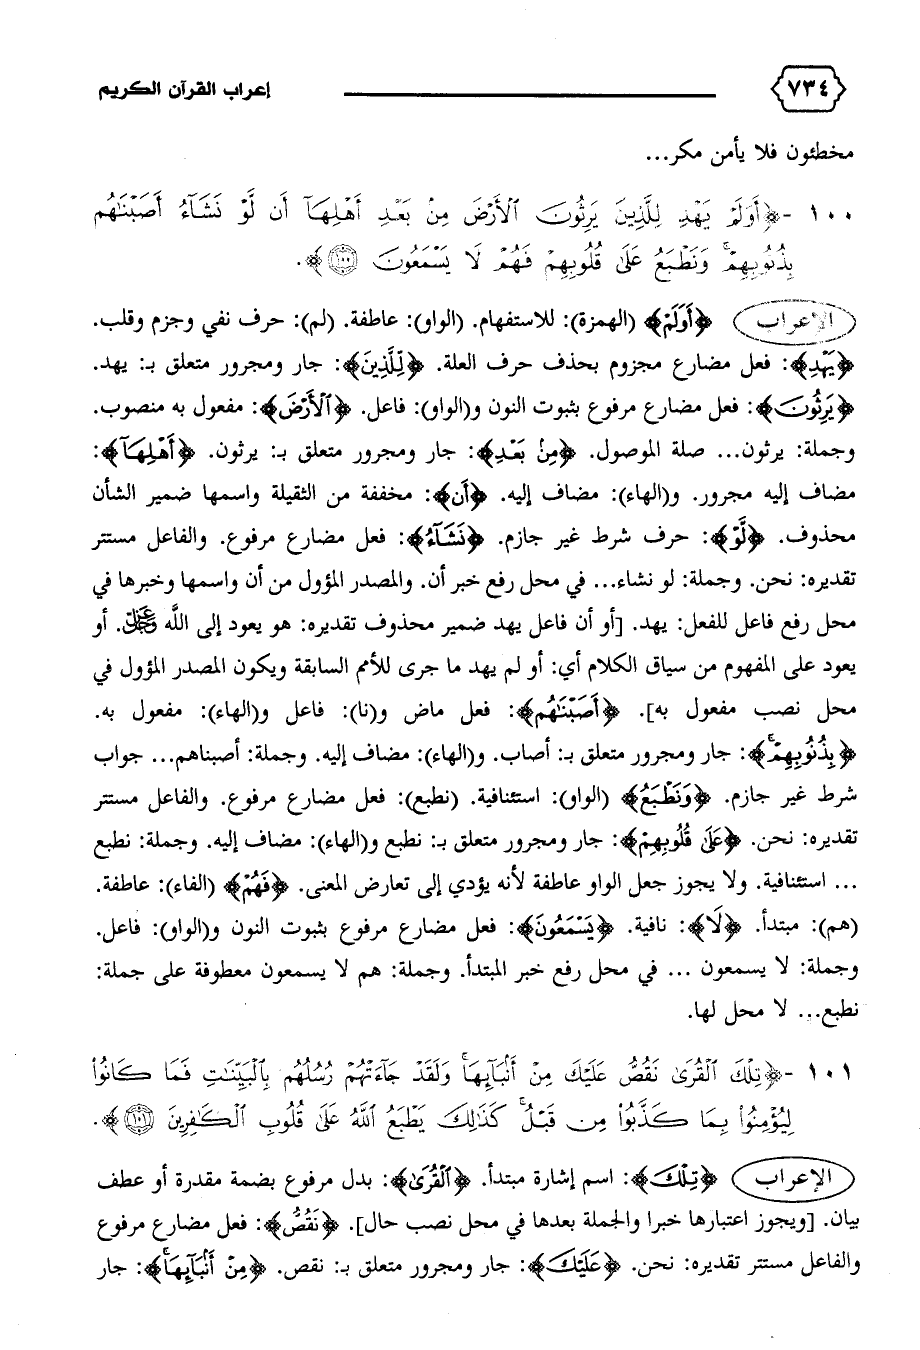 ٧٣٤ إعراب القرآن الكريم
مخطئون فلا يأمن مكر...
١٠٠ -﴿أَوَلَمْ يَهْدِ لِلَّذِينَ يَرِثُونَ ٱلْأَرْضَ مِنۢ بَعْدِ أَهْلِهَآ أَن لَّوْ نَشَآءُ أَصَبْنَٰهُم
بِذُنُوبِهِمْ ۚ وَنَطْبَعُ عَلَىٰ قُلُوبِهِمْ فَهُمْ لَا يَسْمَعُونَ ۝١٠٠﴾.
الإعراب ﴿أَوَلَمْ﴾ (الهمزة): للاستفهام. (الواو): عاطفة. (لم): حرف نفي وجزم وقلب.
﴿يَهْدِ﴾: فعل مضارع مجزوم بحذف حرف العلة. ﴿لِلَّذِينَ﴾: جار ومجرور متعلق بـ: يهد.
﴿يَرِثُونَ﴾: فعل مضارع مرفوع بثبوت النون و(الواو): فاعل. ﴿ٱلْأَرْضَ﴾: مفعول به منصوب.
وجملة: يرثون... صلة الموصول. ﴿مِنۢ بَعْدِ﴾: جار ومجرور متعلق بـ: يرثون. ﴿أَهْلِهَآ﴾:
مضاف إليه مجرور. و(الهاء): مضاف إليه. ﴿أَن﴾: مخففة من الثقيلة واسمها ضمير الشأن
محذوف. ﴿لَّوْ﴾: حرف شرط غير جازم. ﴿نَشَآءُ﴾: فعل مضارع مرفوع. والفاعل مستتر
تقديره: نحن. وجملة: لو نشاء... في محل رفع خبر أن. والمصدر المؤول من أن واسمها وخبرها في
محل رفع فاعل للفعل: يهد. [أو أن فاعل يهد ضمير محذوف تقديره: هو يعود إلى اللَّه ﷿. أو
يعود على المفهوم من سياق الكلام أي: أو لم يهد ما جرى للأمم السابقة ويكون المصدر المؤول في
محل نصب مفعول به]. ﴿أَصَبْنَٰهُم﴾: فعل ماض و(نا): فاعل و(الهاء): مفعول به.
﴿بِذُنُوبِهِمْ ۚ﴾: جار ومجرور متعلق بـ: أصاب. و(الهاء): مضاف إليه. وجملة: أصبناهم... جواب
شرط غير جازم. ﴿وَنَطْبَعُ﴾ (الواو): استئنافية. (نطبع): فعل مضارع مرفوع. والفاعل مستتر
تقديره: نحن. ﴿عَلَىٰ قُلُوبِهِمْ﴾: جار ومجرور متعلق بـ: نطبع و(الهاء): مضاف إليه. وجملة: نطبع
... استئنافية. ولا يجوز جعل الواو عاطفة لأنه يؤدي إلى تعارض المعنى. ﴿فَهُمْ﴾ (الفاء): عاطفة.
(هم): مبتدأ. ﴿لَا﴾: نافية. ﴿يَسْمَعُونَ﴾: فعل مضارع مرفوع بثبوت النون و(الواو): فاعل.
وجملة: لا يسمعون ... في محل رفع خبر المبتدأ. وجملة: هم لا يسمعون معطوفة على جملة:
نطبع... لا محل لها.
١٠١ -﴿تِلْكَ ٱلْقُرَىٰ نَقُصُّ عَلَيْكَ مِنْ أَنۢبَآئِهَا ۚ وَلَقَدْ جَآءَتْهُمْ رُسُلُهُم بِٱلْبَيِّنَٰتِ فَمَا كَانُوا۟
لِيُؤْمِنُوا۟ بِمَا كَذَّبُوا۟ مِن قَبْلُ ۚ كَذَٰلِكَ يَطْبَعُ ٱللَّهُ عَلَىٰ قُلُوبِ ٱلْكَٰفِرِينَ ۝١٠١﴾.
الإعراب ﴿تِلْكَ﴾: اسم إشارة مبتدأ. ﴿ٱلْقُرَىٰ﴾: بدل مرفوع بضمة مقدرة أو عطف
بيان. [ويجوز اعتبارها خبرا والجملة بعدها في محل نصب حال]. ﴿نَقُصُّ﴾: فعل مضارع مرفوع
والفاعل مستتر تقديره: نحن. ﴿عَلَيْكَ﴾: جار ومجرور متعلق بـ: نقص. ﴿مِنْ أَنۢبَآئِهَا ۚ﴾: جار